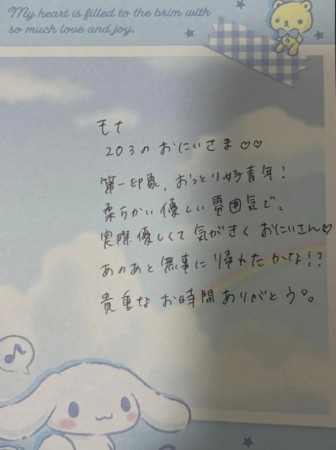 My heart is filled to the brim with
so much love and joy.
モナ
203のおにいさま♡♡
第一印象、おっとり好青年!
柔らかい優しい雰囲気で、
実際優しくて気がきくおにいさん♡
あのあと無事に帰れたかな!?
貴重なお時間ありがとう。